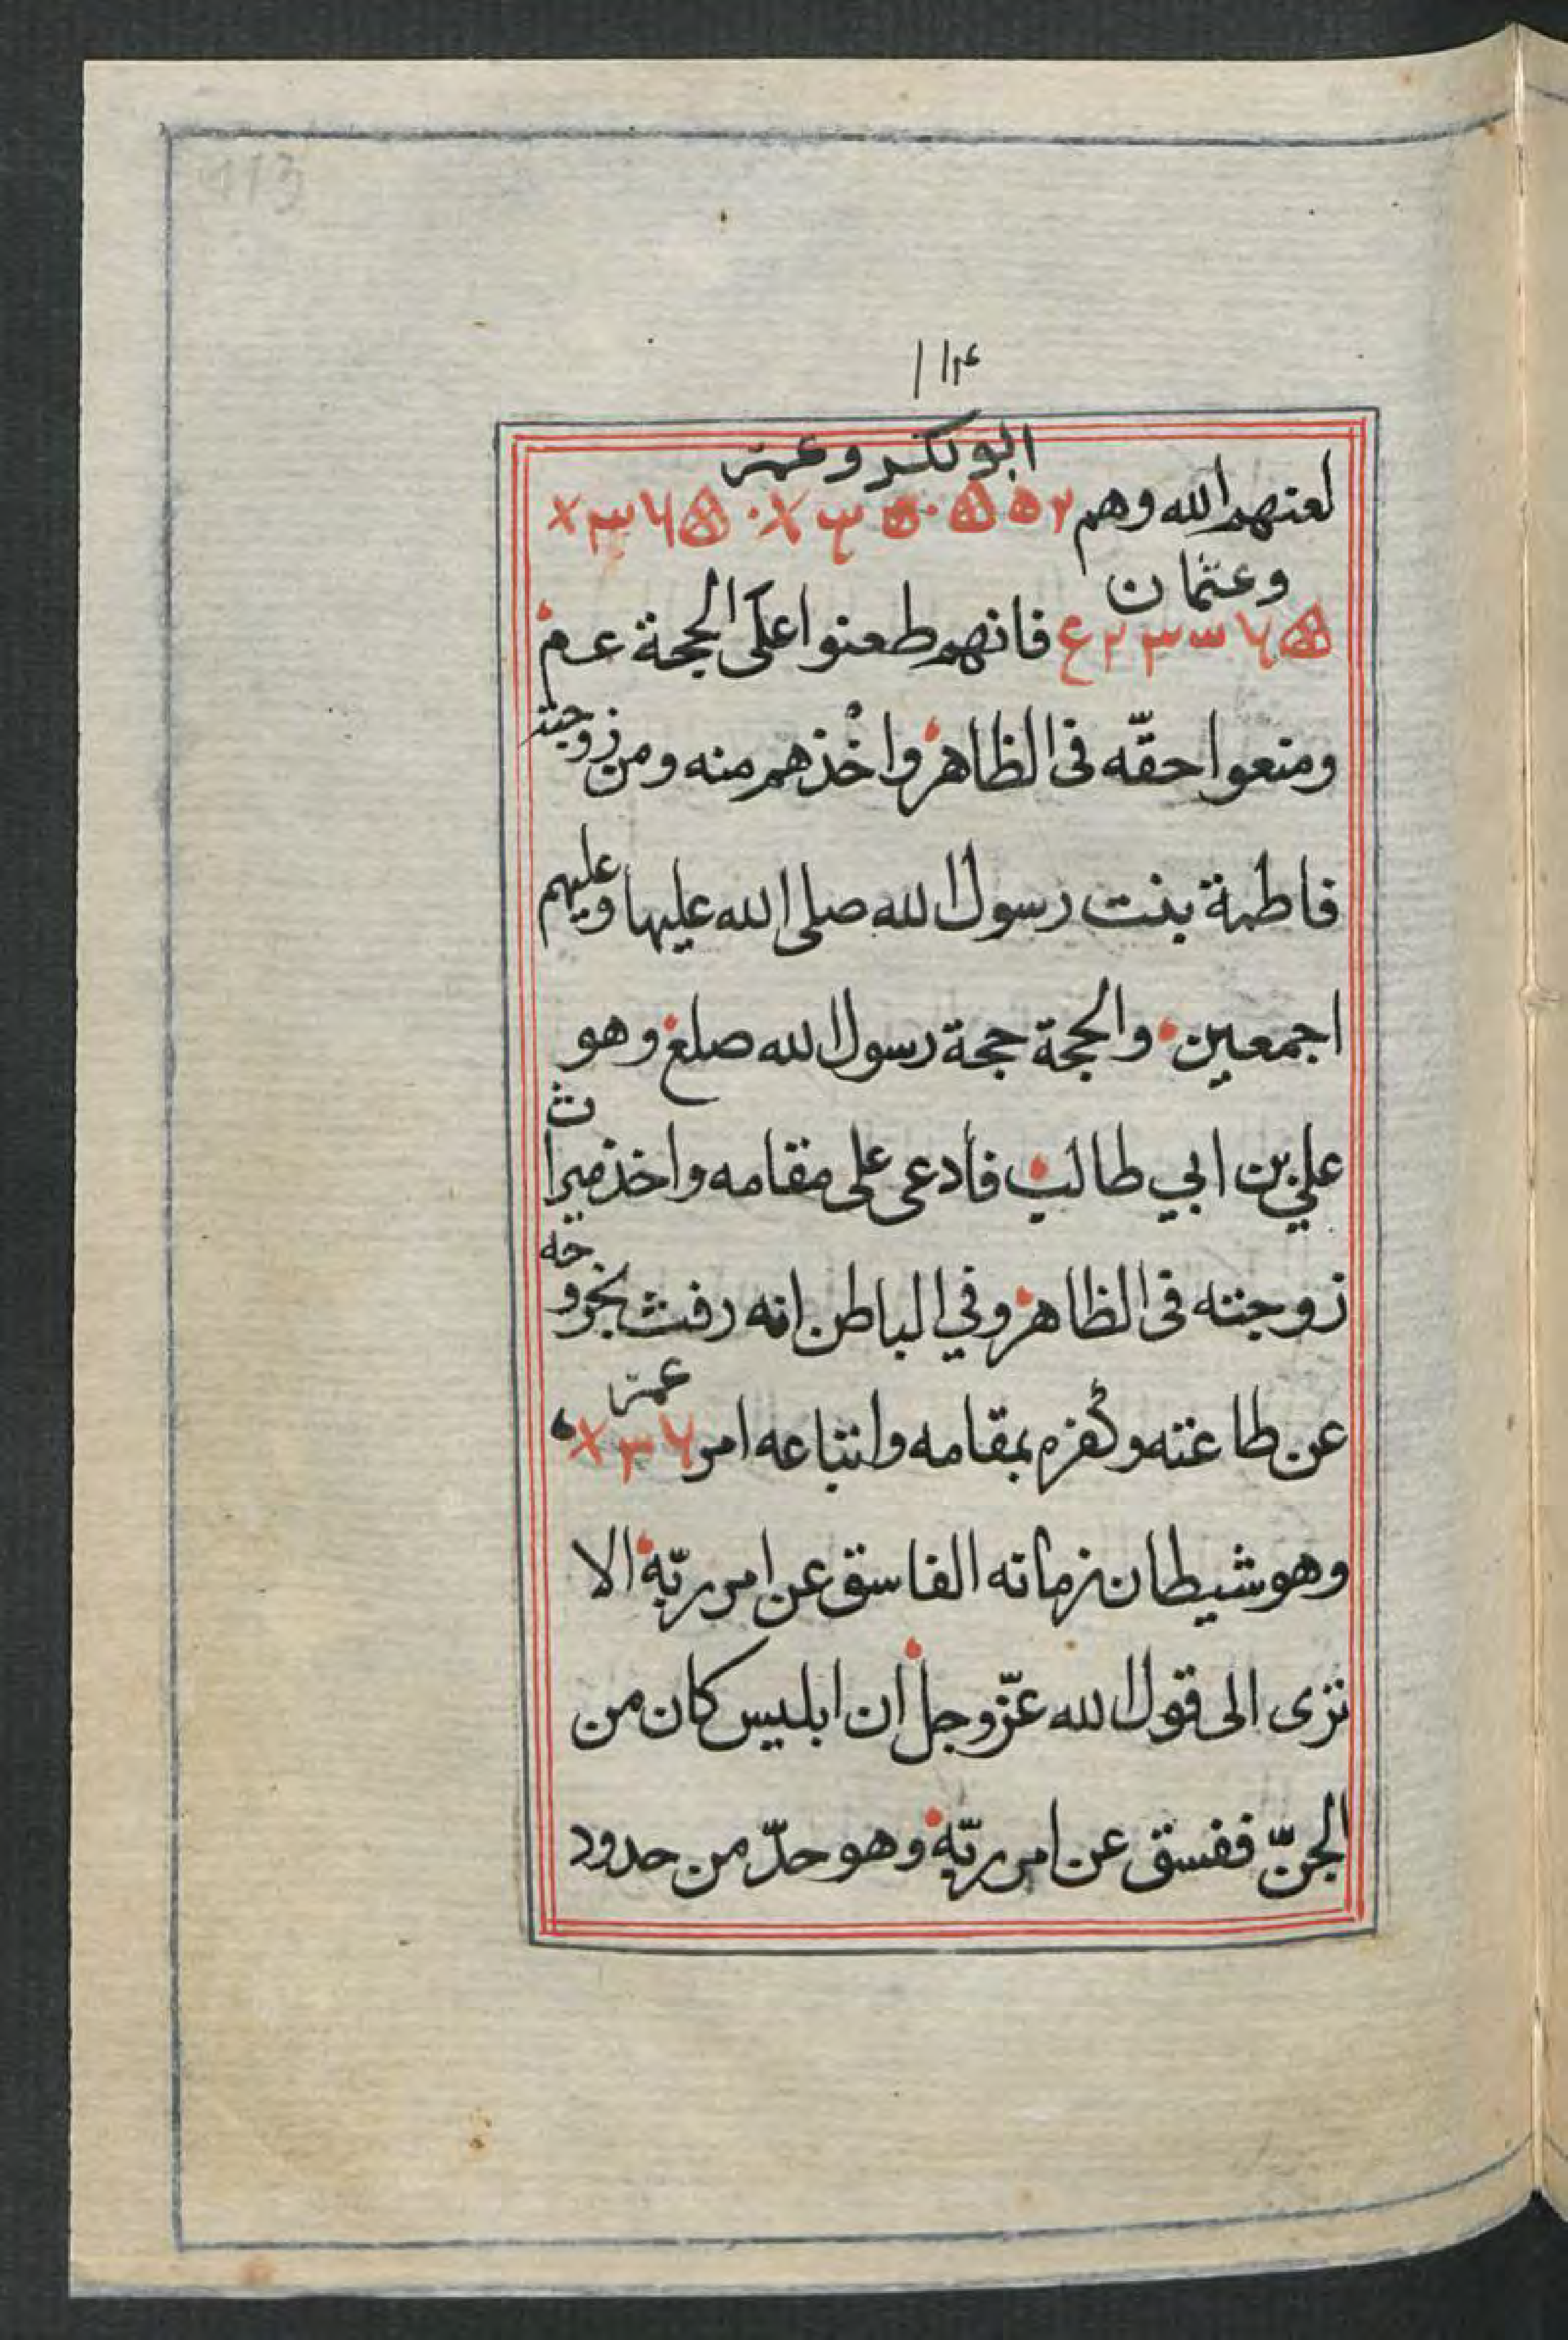 113
١١٤
ابو بكر و عمر
لعنهم الله وهم
وعثمان
فانهم طعنوا على الحجة ع م
ومنعوا حقّه فى الظاهر واخذهم منه ومن زوجته
فاطمة بنت رسول الله صلى الله عليها وعليهم
اجمعين والحجة حجة رسول الله صلع وهو
علي بن ابي طالب فادعى على مقامه واخذ ميراث
زوجته فى الظاهر وفي الباطن انه رفث بخروجه
عمر
عن طاعته وكفره بمقامه واتباعه امر
وهو شيطان زمانه الفاسق عن امر ربّه الا
ترى الى قول الله عزّ وجل ان ابليس كان من
الجنّ ففسق عن امر ربّه وهو حدّ من حدود